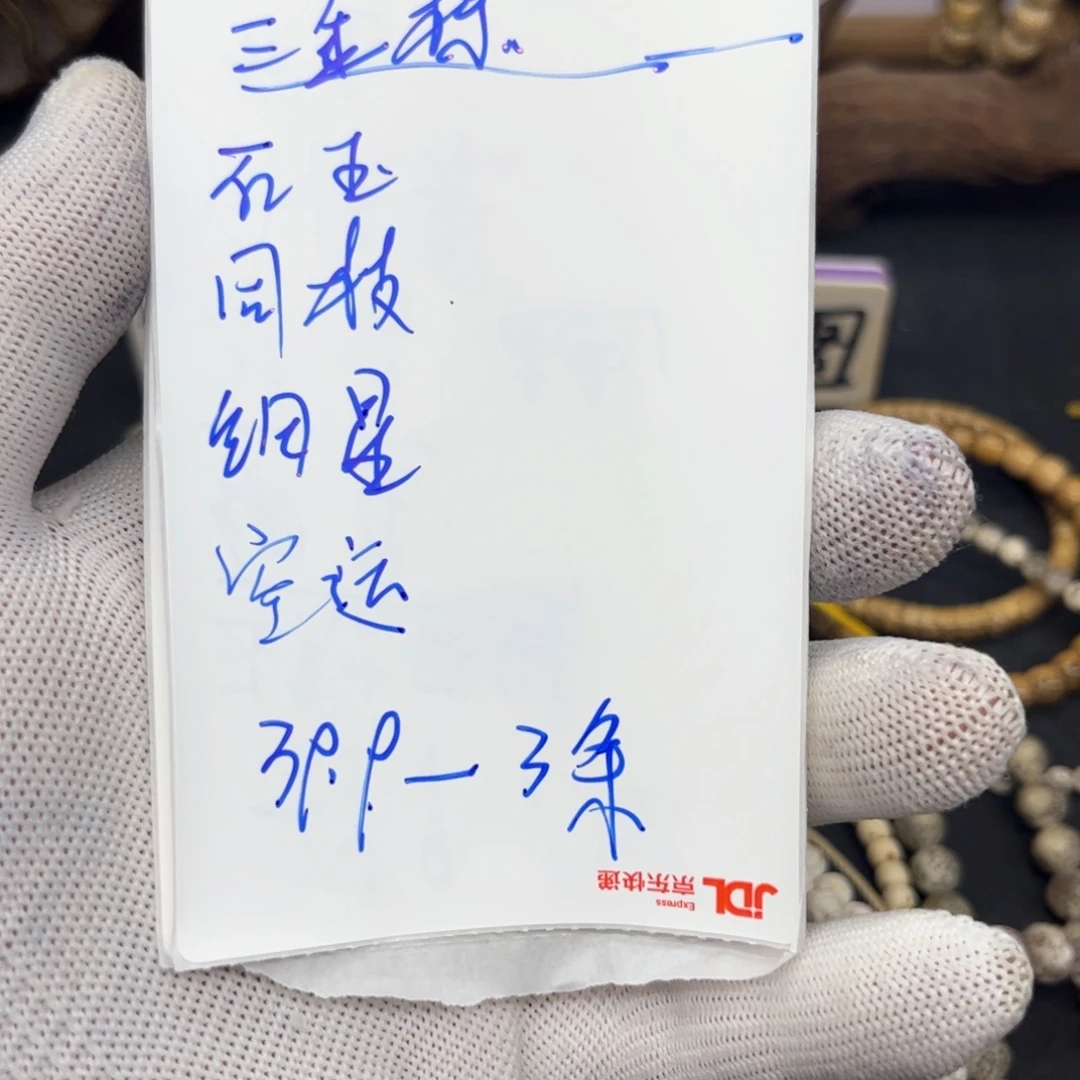 三年
石玉
同枝
细星
空运
399一3条
JDL
京东快递
Express
周